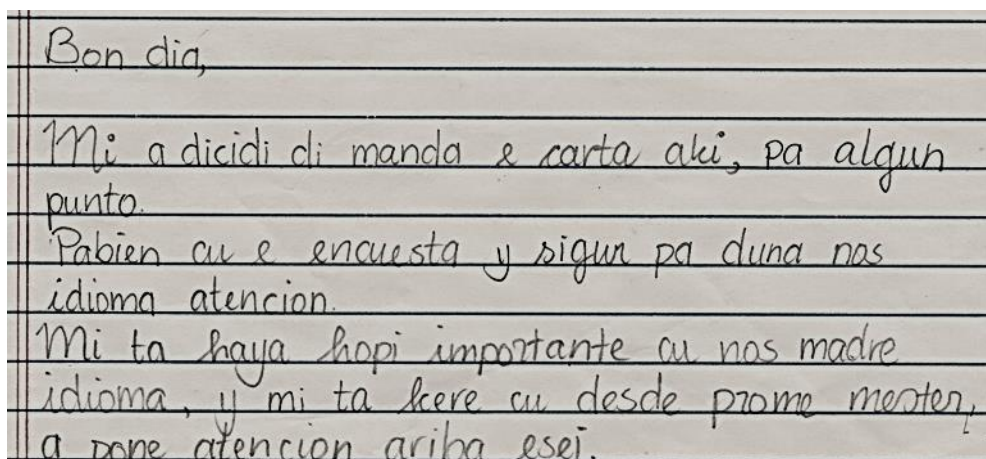 Bon dia,
Mi a dicidi di manda e carta aki, pa algun
punto.
Pabien cu e encuesta y sigur pa duna nos
idioma atencion.
Mi ta haya hopi importante cu nos madre
idioma, y mi ta kere cu desde prome mester,
a pone atencion ariba esei.